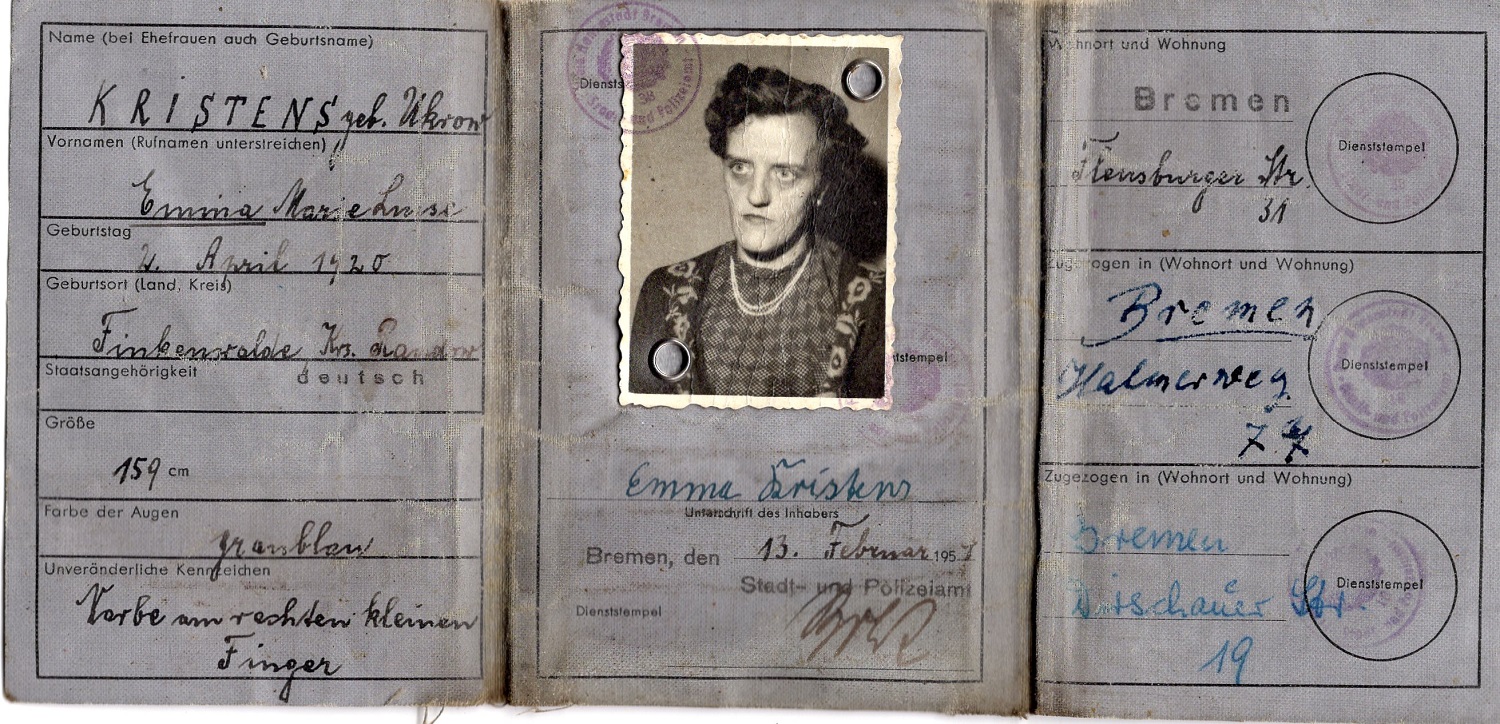 Name (bei Ehefrauen auch Geburtsname)
KRISTENS geb. Ukrow
Vornamen (Rufnamen unterstreichen)
Emma Marie Luise
Geburtstag
2. April 1920
Geburtsort (Land, Kreis)
Finkenwalde Krs. Randow
Staatsangehörigkeit
deutsch
Größe
159 cm
Farbe der Augen
graublau
Unveränderliche Kennzeichen
Narbe am rechten kleinen
Finger
Stadt- und Polizeiamt
38
Emma Kristens
Unterschrift des Inhabers
Bremen, den 13. Februar 1951
Stadt- und Polizeiamt
Dienststempel
Wohnort und Wohnung
Bremen
Flensburger Str.
31
Dienststempel
Zugezogen in (Wohnort und Wohnung)
Bremen
Halmerweg
77
Dienststempel
Zugezogen in (Wohnort und Wohnung)
Bremen
Dirschauer Str.
19
Dienststempel